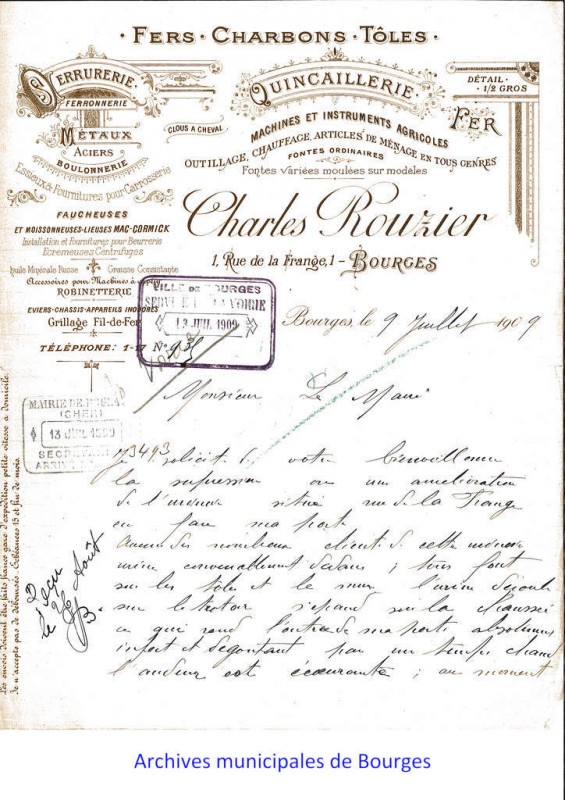 · FERS · CHARBONS · TÔLES ·
SERRURERIE
FERRONNERIE
MÉTAUX
ACIERS
BOULONNERIE
Essieux & Fournitures pour Carrosserie
CLOUS A CHEVAL
QUINCAILLERIE
DÉTAIL
1/2 GROS
MACHINES ET INSTRUMENTS AGRICOLES
FER
OUTILLAGE, CHAUFFAGE, ARTICLES DE MÉNAGE EN TOUS GENRES
FONTES ORDINAIRES
Fontes variées moulées sur modèles
FAUCHEUSES
ET MOISSONNEUSES-LIEUSES MAC-CORMICK
Installation et Fournitures pour Beurrerie
Ecremeuses Centrifuges
Huile Minérale Russe Graisse Consistante
Accessoires pour Machines à
ROBINETTERIE
EVIERS-CHASSIS-APPAREILS INODORES
Grillage Fil-de-Fer
TÉLÉPHONE: 1-17
Charles Rouzier
1, Rue de la Frange, 1 - BOURGES
VILLE DE BOURGES
SERVICE DE LA VOIRIE
13 JUIL 1909
N°
Bourges, le 9 Juillet 1909
MAIRIE DE BOURGES
(CHER)
13 JUIL 1909
SECRÉTARIAT
Monsieur Le Maire
73493
Je sollicite de votre bienveillance
la supression ou une amélioration
de l'urinoir situé rue de la Frange
en face ma porte
des nombreux client de cette
urine convenablement dedans; tous font
sur les tôles et le mur l'urine découle
sur le trotoir s'épand sur la chaussé
ce qui rend l'entrée de ma porte absolument
infect et dégoutant par un temps chaud
l'audeur est écœurante; au moment
Reçu
le 26 Août
Les envois doivent être faits franco gare d'expédition petite vitesse à domicile
Je n'accepte pas de déboursés. Échéances 15 et fin de mois
Archives municipales de Bourges